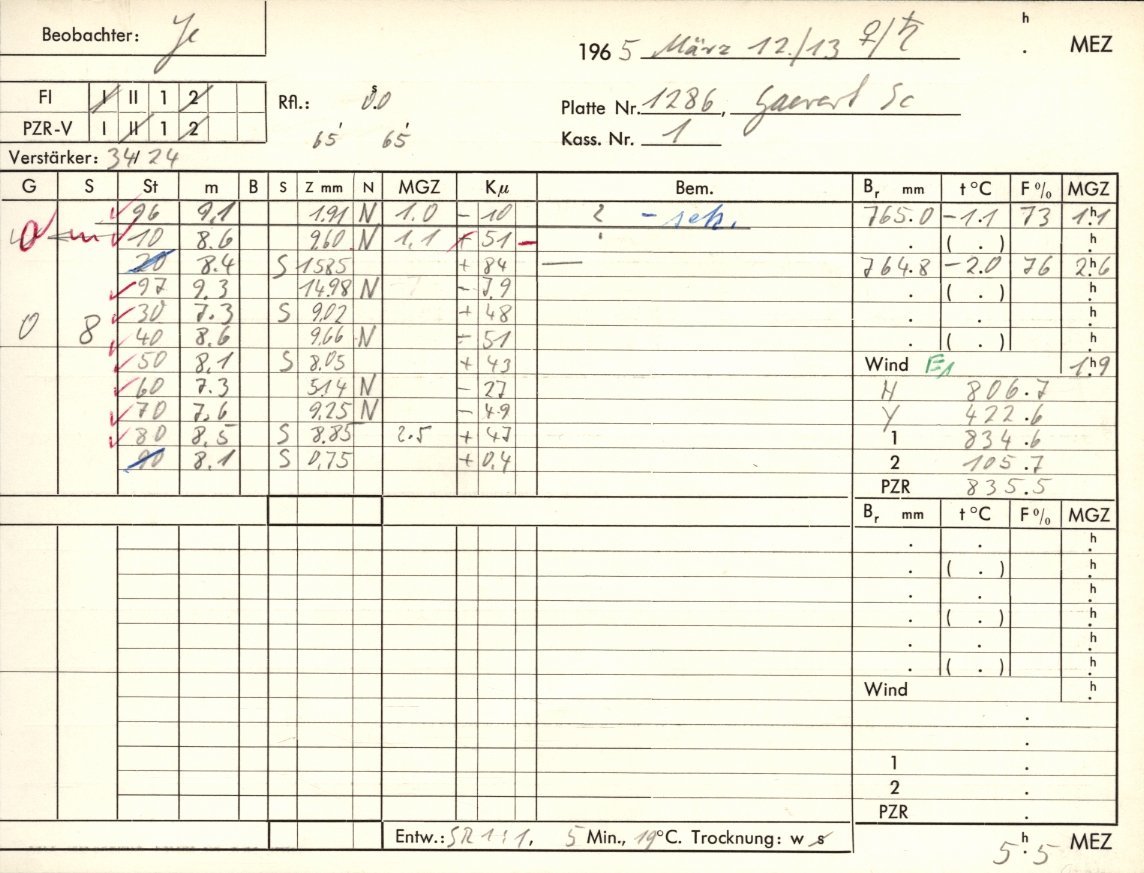 Beobachter: Je
h
196 5 März 12./13 ♀/♄ . MEZ
FI I II 1 2
Rfl.: 0.0 s
Platte Nr. 1286, Gaevert Sc
PZR-V I II 1 2
65' 65'
Kass. Nr. 1
Verstärker: 34/24
G S St m B S Z mm N MGZ Kμ Bem. Br mm t °C F % MGZ
96 9,1 1.91 N 1.0 - 10 ? - seh. 765.0 -1.1 73 1h1
0 m 10 8.6 9,60 N 1,1 + 51 - . ( . ) h
20 8.4 S 1585 + 84 — 764.8 -2.0 76 2h6
97 9.3 14.98 N - 7,9 . ( . ) h
30 7.3 S 9,02 + 48 . . h
0 8 40 8,6 9,66 N - 51 . ( . ) h
50 8,1 S 8.05 + 43 Wind E1 1h9
60 7.3 5,14 N - 27 H 806.7
70 7,6 9,25 N - 49 Y 422.6
80 8,5 S 8,85 2.5 + 47 1 834.6
90 8.1 S 0,75 + 0,4 2 105.7
PZR 835.5
Br mm t °C F % MGZ
. . h
. ( . ) h
. . h
. ( . ) h
. . h
. ( . ) h
Wind h
.
.
1 .
2 .
PZR .
Entw.: SR 1:1, 5 Min., 19°C. Trocknung: w s
5h.5 MEZ